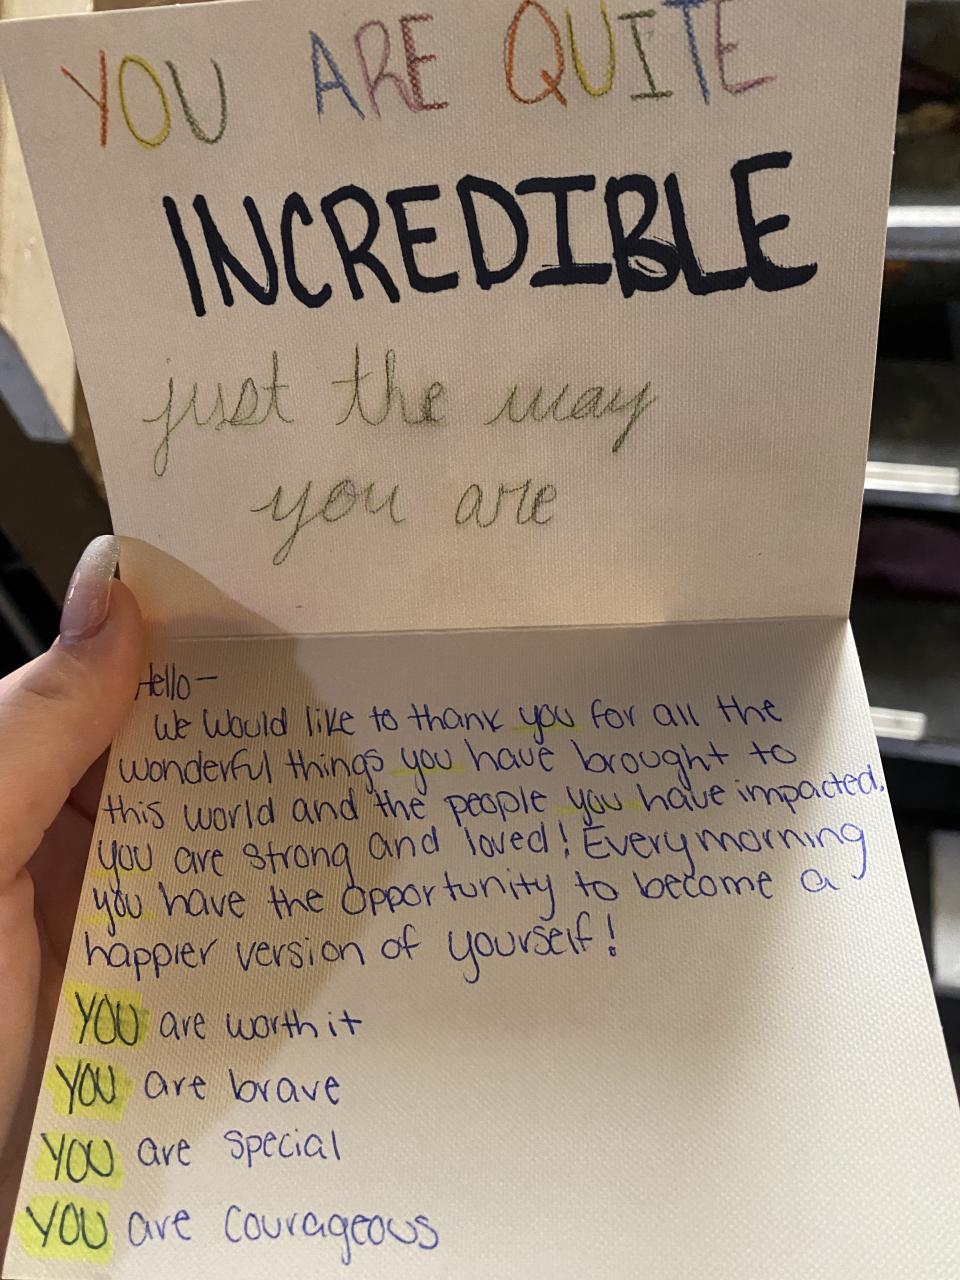 YOU ARE QUITE
INCREDIBLE
just the way
you are
Hello-
We would like to thank you for all the
wonderful things you have brought to
this world and the people you have impacted.
you are strong and loved! Every morning
you have the opportunity to become a
happier version of yourself!
YOU are worth it
YOU are brave
YOU are special
YOU are courageous